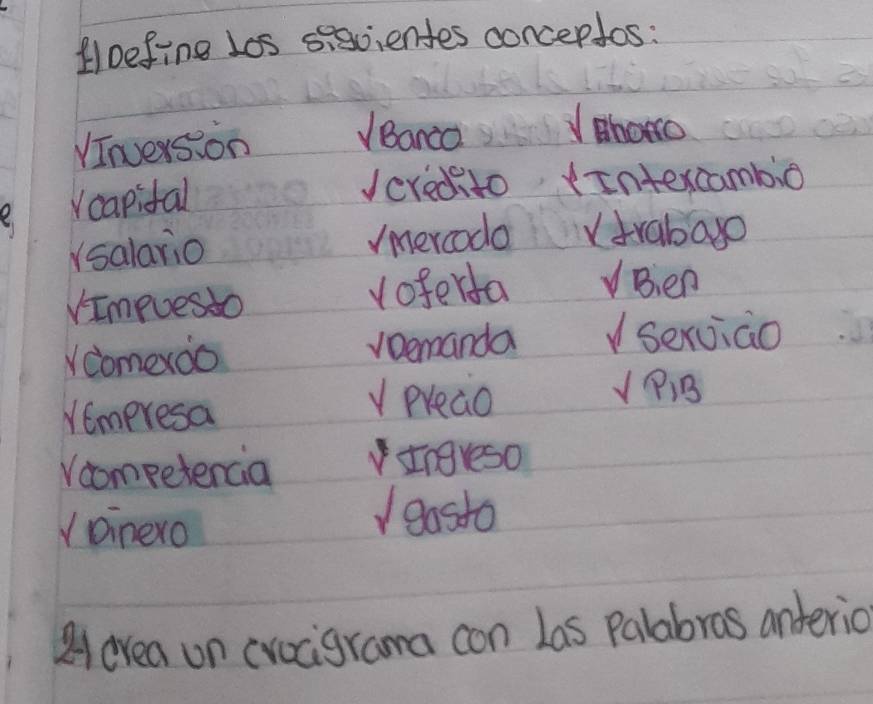 1) Define los siguientes conceptos:
√ Inversión √ Banco √ Ahorro
√ capital √ crédito √ Intercambio
√ salario √ mercado √ trabajo
√ Impuesto √ oferta √ Bien
√ comercio √ Demanda √ servicio
√ Empresa √ precio √ PIB
√ competencia √ Ingreso
√ Dinero √ gasto
2) crea un crucigrama con las palabras anterio